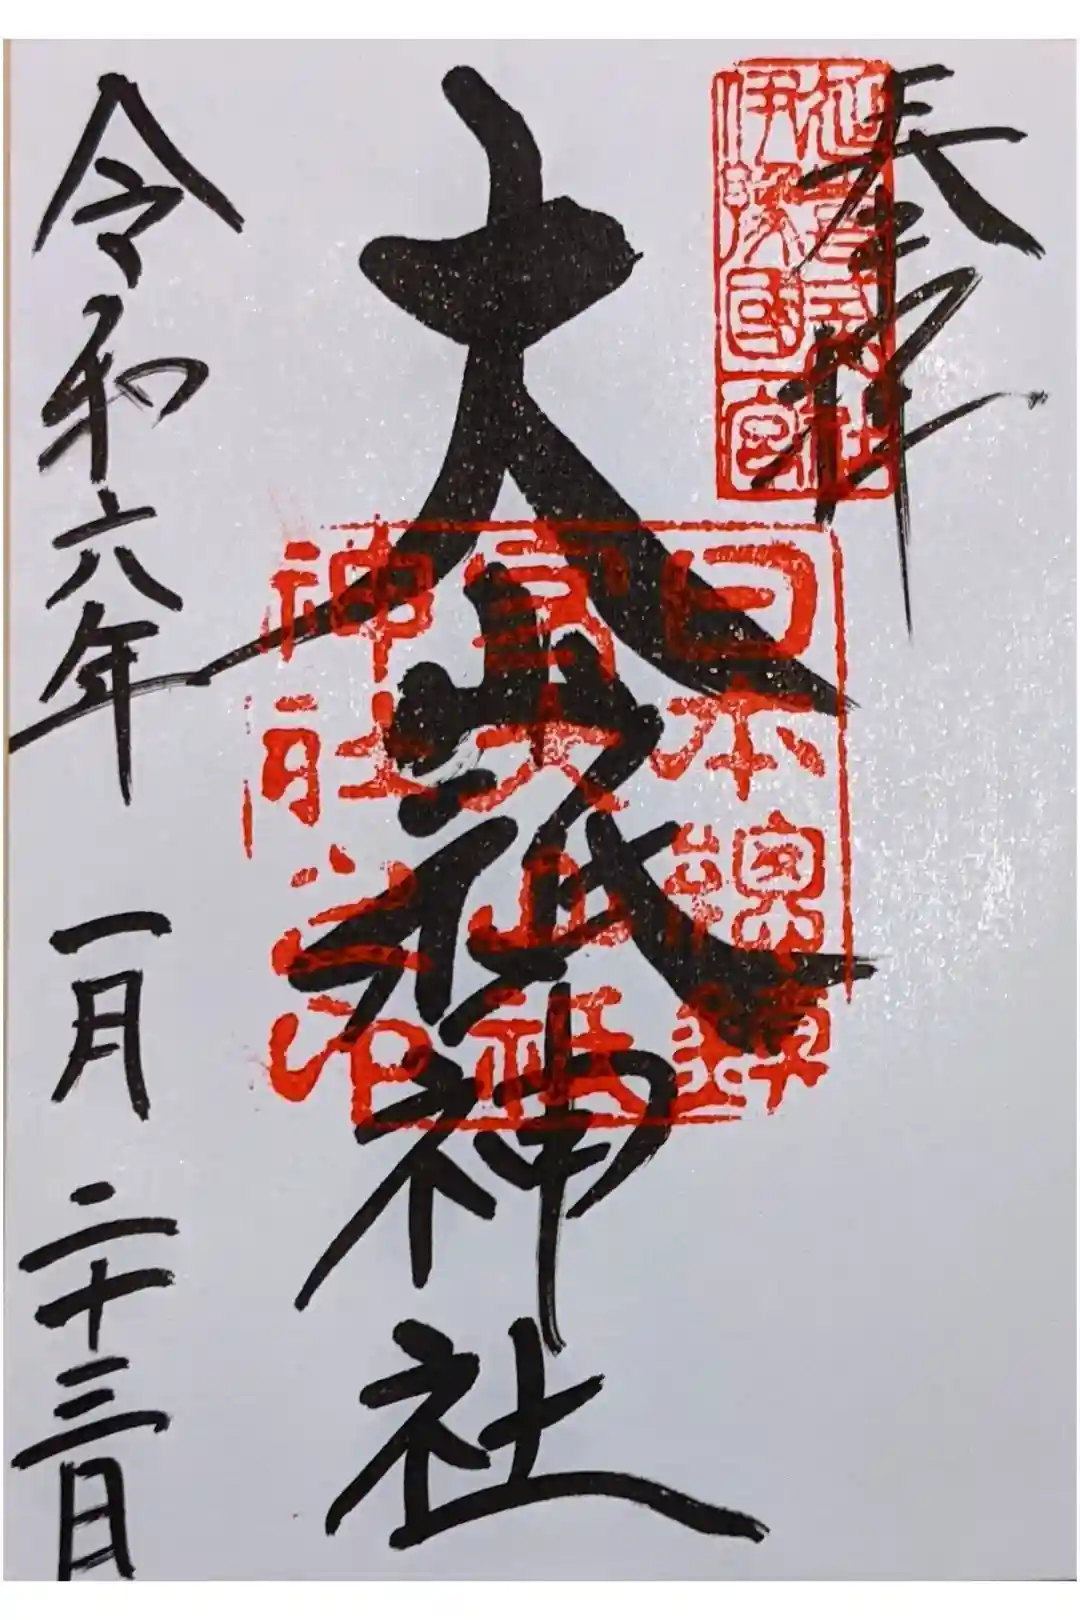 奉拝
延喜式社
伊豫國一宮
大山祇神社
日本總鎮
守大山祇
神社之印
令和六年 一月 二十三日